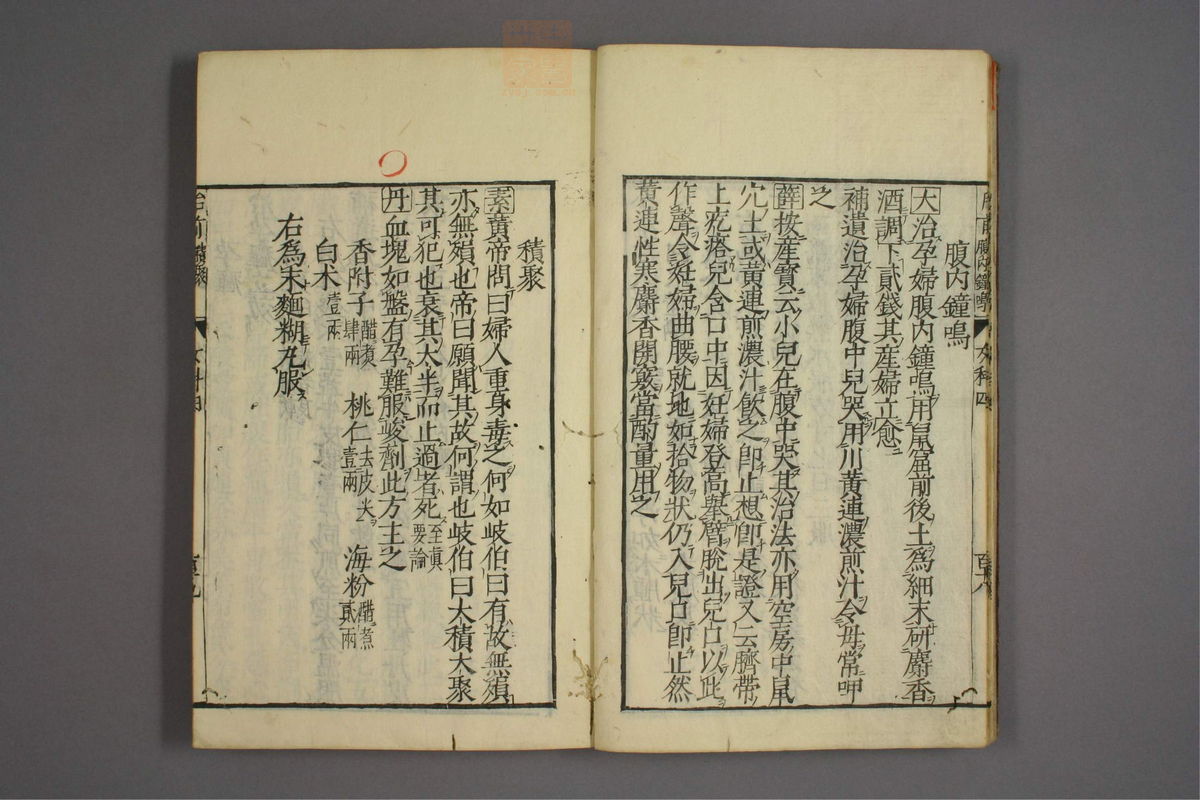 腹内鐘鳴
大治孕婦腹内鐘鳴用鼠窟前後土爲細末研麝香
酒調下貳錢其産婦立愈
補遺治孕婦腹中兒哭用川黄連濃煎汁令母常呷
之
薛按産寳云小兒在腹中哭其治法亦用空房中鼠
穴土或黄連煎濃汁飲之即止想即是證又云臍帶
上疙瘩兒含口中因妊婦登高舉臂脫出兒口以此
作聲令妊婦曲腰就地如拾物狀仍入兒口即止然
黄連性寒麝香開竅當酌量用之
女科四
百八
積聚
素黄帝問曰婦人重身毒之何如岐伯曰有故無殞
亦無殞也帝曰願聞其故何謂也岐伯曰大積大聚
其可犯也衰其大半而止過者死至眞要論
丹血塊如盤有孕難服峻劑此方主之
香附子醋煮肆兩 桃仁去皮尖壹兩 海粉醋煮貳兩
白术壹兩
右爲末麵糊丸服